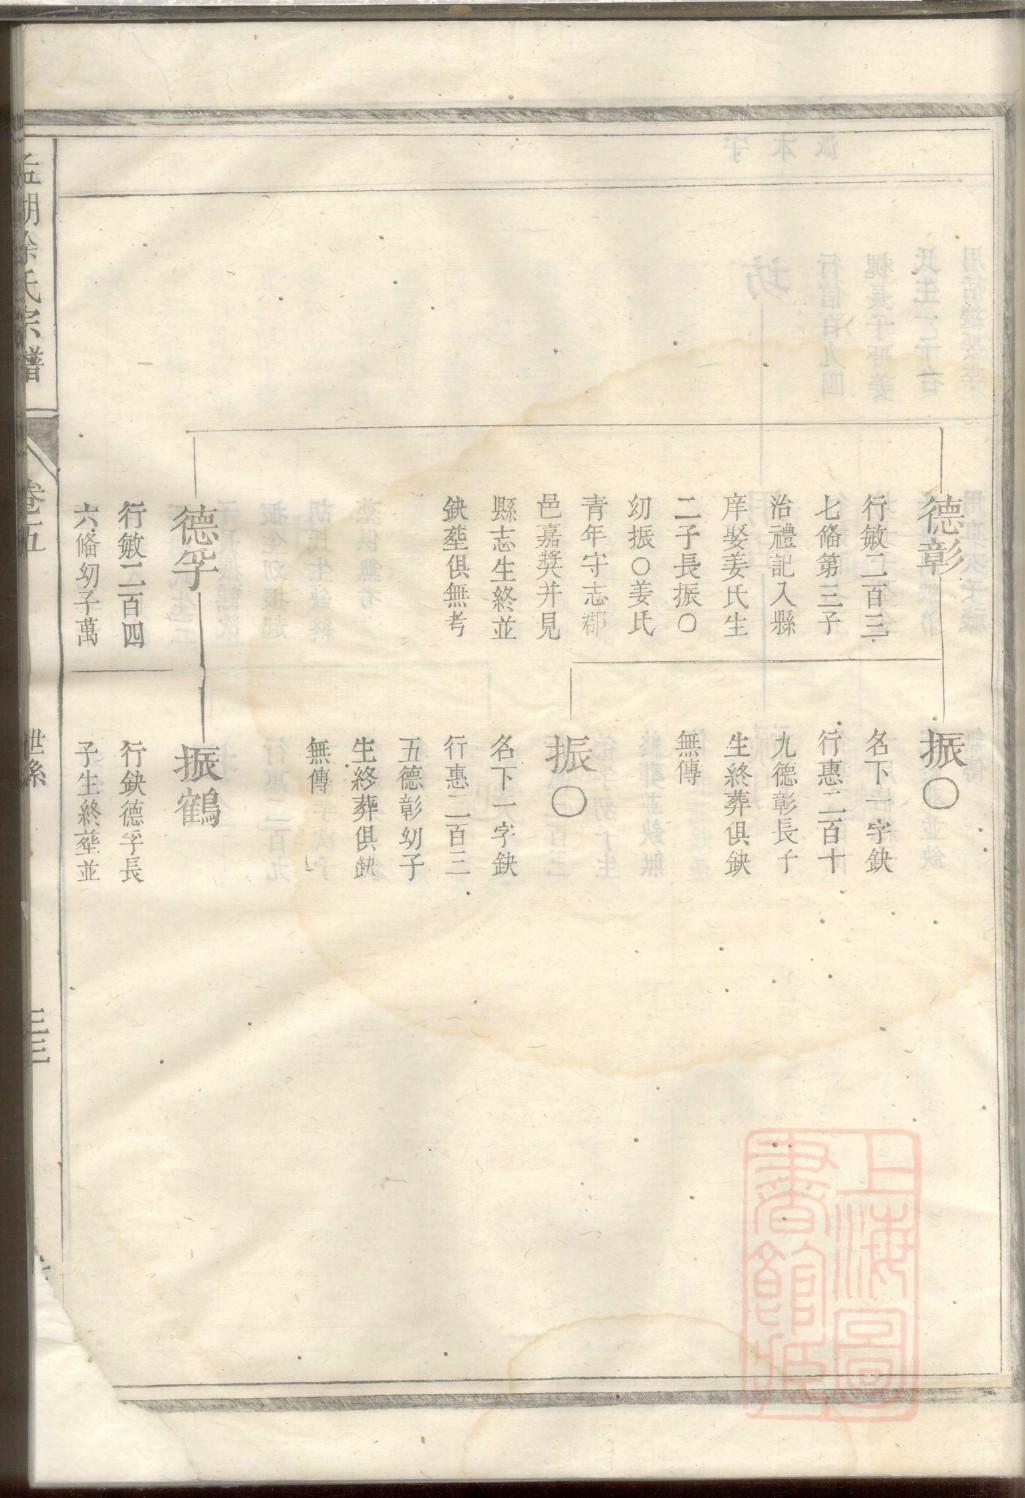 德彰
行敏二百三
七脩第三子
治禮記入縣
庠娶姜氏生
二子長振〇
幼振〇姜氏
青年守志郡
邑嘉奬并見
縣志生終並
鈌塟俱無考
德孚
行敏二百四
六脩幼子萬
振〇
名下一字鈌
行惠二百十
九德彰長子
生終葬俱鈌
無傳
振〇
名下一字鈌
行惠二百三
五德彰幼子
生終葬俱鈌
無傳
振鶴
行鈌德孚長
子生終塟並
氏宗譜
卷五
世系
上海圖
書館藏